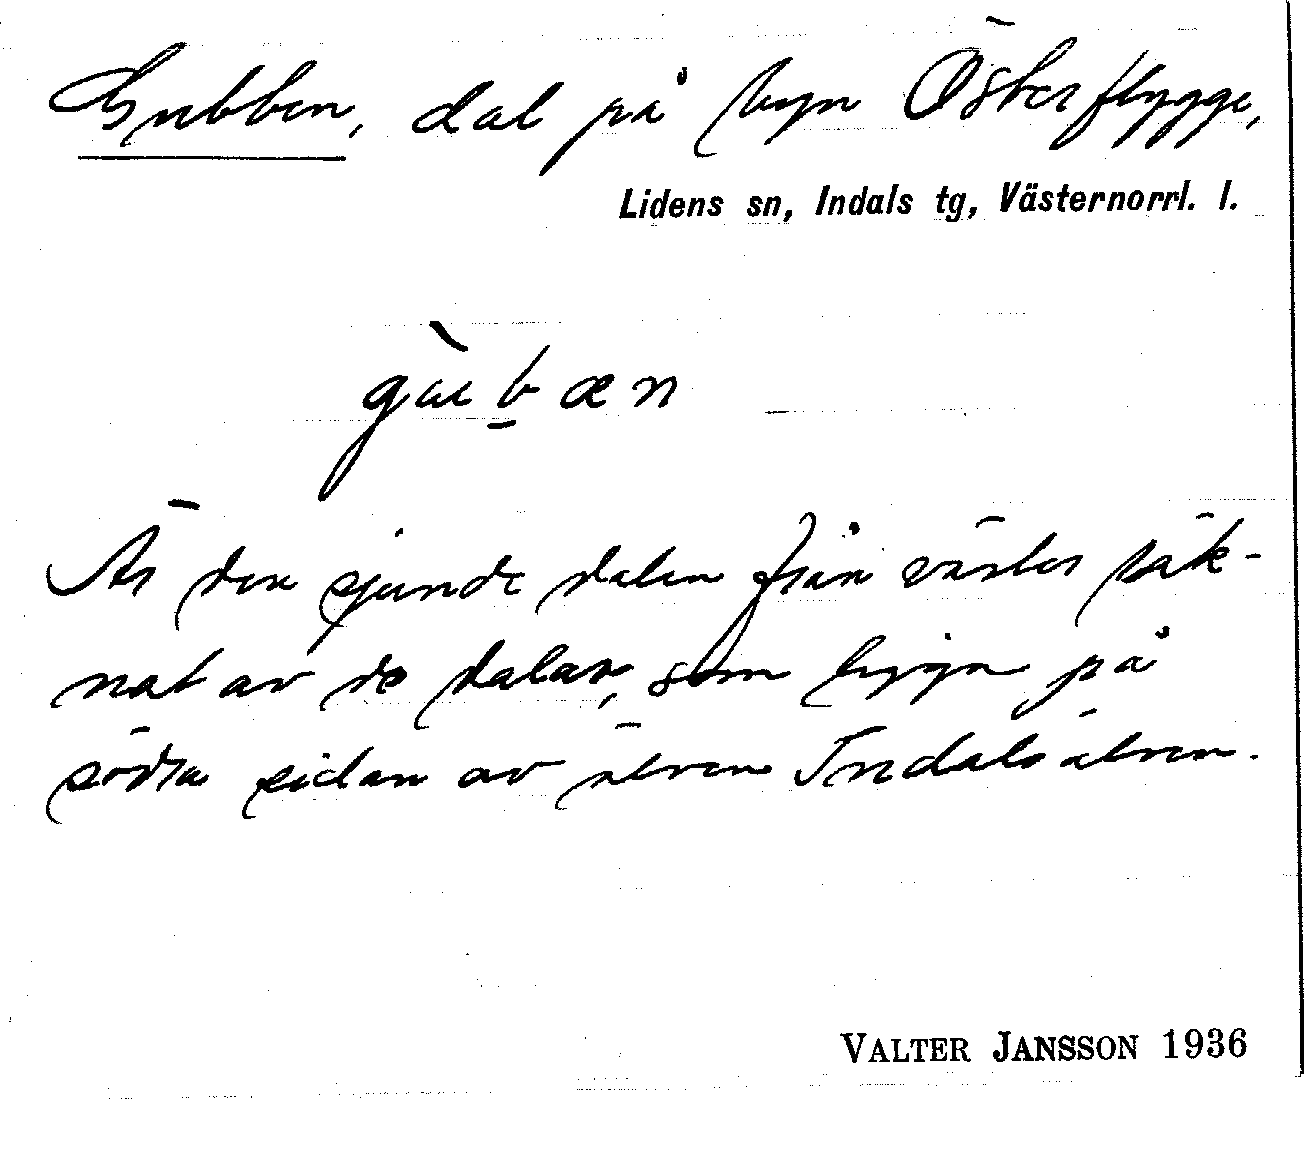 Gubben, dal på byn Österflygge,
Lidens sn, Indals tg, Västernorrl. l.
Är den sjunde dalen från väster räk-
nat av de dalar, som ligga på
södra sidan av älven Indalsälven.
VALTER JANSSON 1936